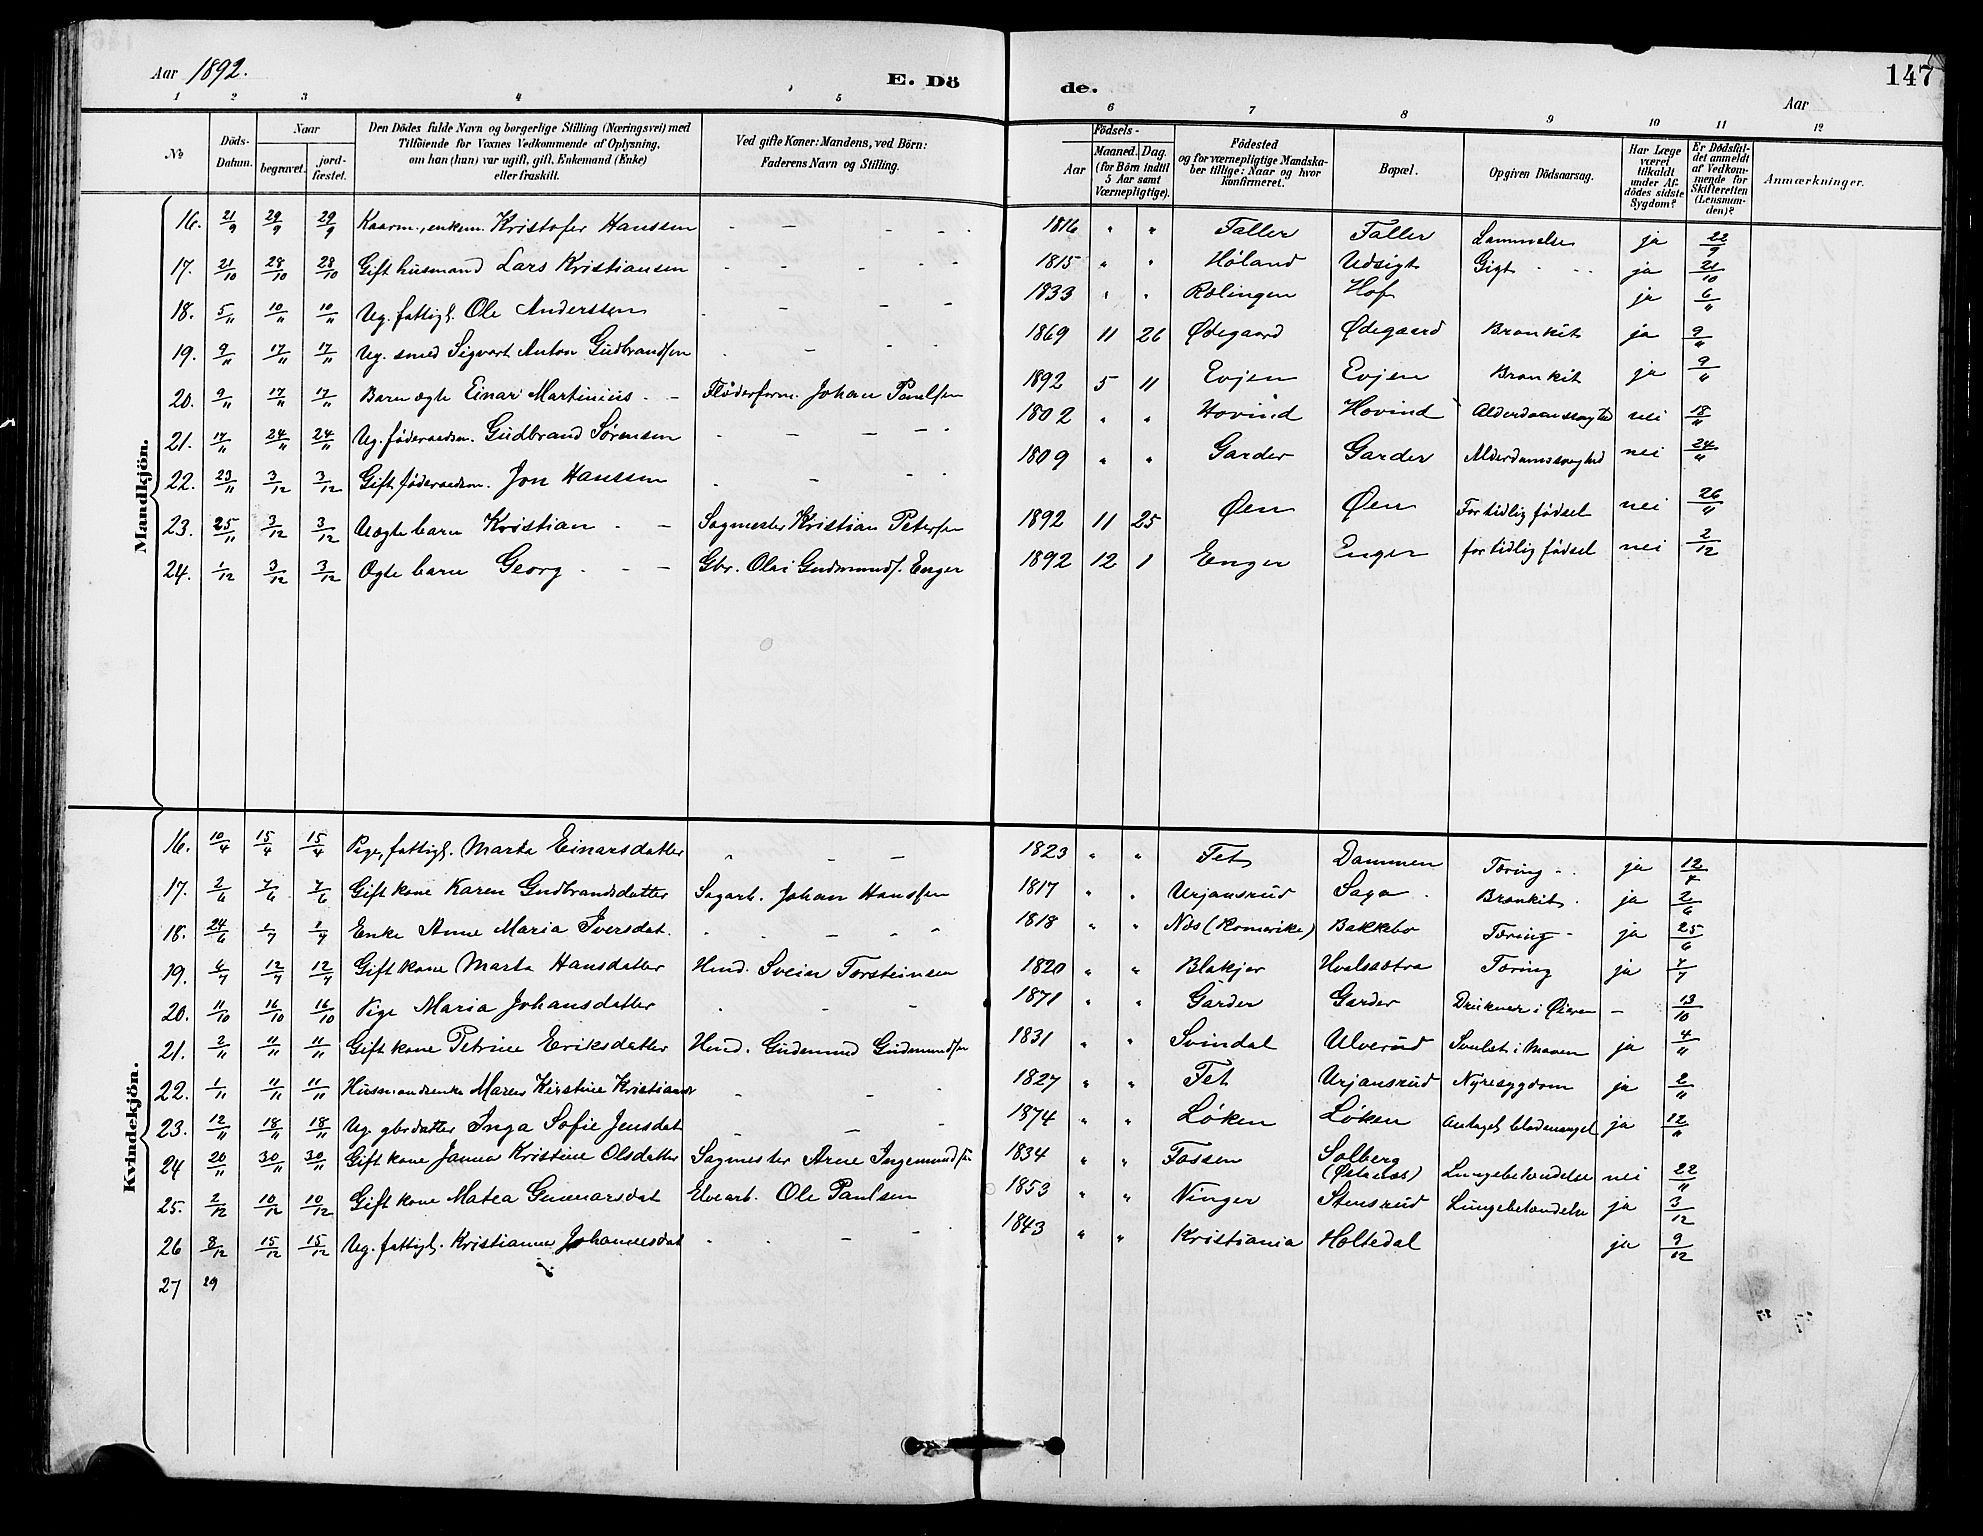 Aar 1892. E. Dö de. Aar 147
1 2 3 4 5 6 7 8 9 10 11 12
No Döds-Datum. Naar begravet. jordfæstet. Den Dödes fulde Navn og borgerlige Stilling (Næringsvei) med Tilföiende for Voxnes Vedkommende af Oplysning, om han (hun) var ugift, gift, Enkemand (Enke) eller fraskilt. Ved gifte Koner: Mandens, ved Börn: Faderens Navn og Stilling. Födsels- Aar Maaned. Dag. (for Börn indtil 5 Aar samt Værnepligtige). Födested og for værnepligtige Mandskaber tillige: Naar og hvor konfirmeret. Bopæl. Opgiven Dödsaarsag. Har Læge været tilkaldt under Afdödes sidste Sygdom? Er Dödsfaldet anmeldt af Vedkommende for Skifteretten (Lensmanden)? Anmærkninger.
Mandkjön.
16. 21/9 29/9 29/9 Kaarm., enkem. Kristofer Hanssen - - - - 1816 " " Faller Faller Lammelse ja 22/9
17. 21/10 28/10 28/10 Gift husmand Lars Kristiansen - - - - 1815 " " Høland Udsigt Gigt - - ja 21/10
18. 5/" 10/" 10/" Ug. fattigl. Ole Anderssen - - - - 1833 " " Rælingen Hof ja 6/"
19. 9/" 17/" 17/" Ug. smed Sigvart Anton Gudbrandsen - - - 1869 11 26 Ødegaard Ødegaard Bronkit ja 9/"
20. 9/" 17/" 17/" Barn ægte Einar Martinius - - Fløderform. Johan Paulsen 1892 5 11 Evjen Evjen Bronkit ja 9/"
21. 17/" 24/" 24/" Ug. føderaadsm. Gudbrand Sørensen - - - - 1802 " " Hovind Hovind Alderdomssvaghed nei 18/"
22. 23/" 3/12 3/12 Gift føderaadsm. Jon Hanssen - - - - 1809 " " Garder Garder Alderdomssvaghed nei 24/"
23. 25/" 3/12 3/12 Uægte barn Kristian - - Sagmester Kristian Petersen 1892 11 25 Øen Øen For tidlig fødsel nei 26/"
24. 1/12 3/12 3/12 Ægte barn Georg - - - Gbr. Olai Gudmunds. Enger 1892 12 1 Enger Enger for tidlig fødsel nei 2/12
Kvindekjön.
16. 10/4 15/4 15/4 Pige, fattigl. Marta Einarsdatter " - - 1823 " " Fet Dammen Tæring - - ja 12/4
17. 2/6 7/6 7/6 Gift kone Karen Gudbrandsdatter Sagarb. Johan Hansen 1817 " " Urjansrud Saga - Bronkit - ja 2/6
18. 24/6 1/7 1/7 Enke Anne Maria Iversdat. - - - - 1818 " " Næs (Romerike) Bakkebo Tæring - ja 25/6
19. 6/7 12/7 12/7 Gift kone Marta Hansdatter Hmd. Svein Torsteinsen 1820 " " Blakjer Hvalsæstra Tæring ja 7/7
20. 11/10 16/10 16/10 Pige Maria Johansdatter - - - 1871 " " Garder Garder Druknet i Øieren - 13/10
21. 2/" 11/" 11/" Gift kone Petrine Eriksdatter Hmd. Gudmund Gudmundsen 1831 " " Svindal Ulverud Svulst i Maven ja 4/"
22. 1/" 11/" 11/" Husmandsenke Maren Kirstine Kristiansd. - - - 1827 " " Fet Urjansrud Nyresygdom ja 2/"
23. 12/" 18/" 18/" Ug. gbrdatter Inga Sofie Jensdat - - - 1874 " " Løken Løken Antaget blodmangel ja 12/"
24 20/" 30/" 30/" Gift kone Janna Kristine Olsdatter Sagmester Arne Ingemundsen 1834 " " Fossen Solberg (Østenaas) Lungebetændelse nei 22/"
25. 2/12 10/12 10/12 Gift kone Matea Gunnarsdat Elvearb. Ole Paulsen 1853 " " Vinger Stensrud Lungebetændelse ja 3/12
26 8/12 15/12 15/12 Ug. fattigl. Kristianne Johannesdat - - - - 1843 " " Kristiania Holtedal ja 9/12
27 29